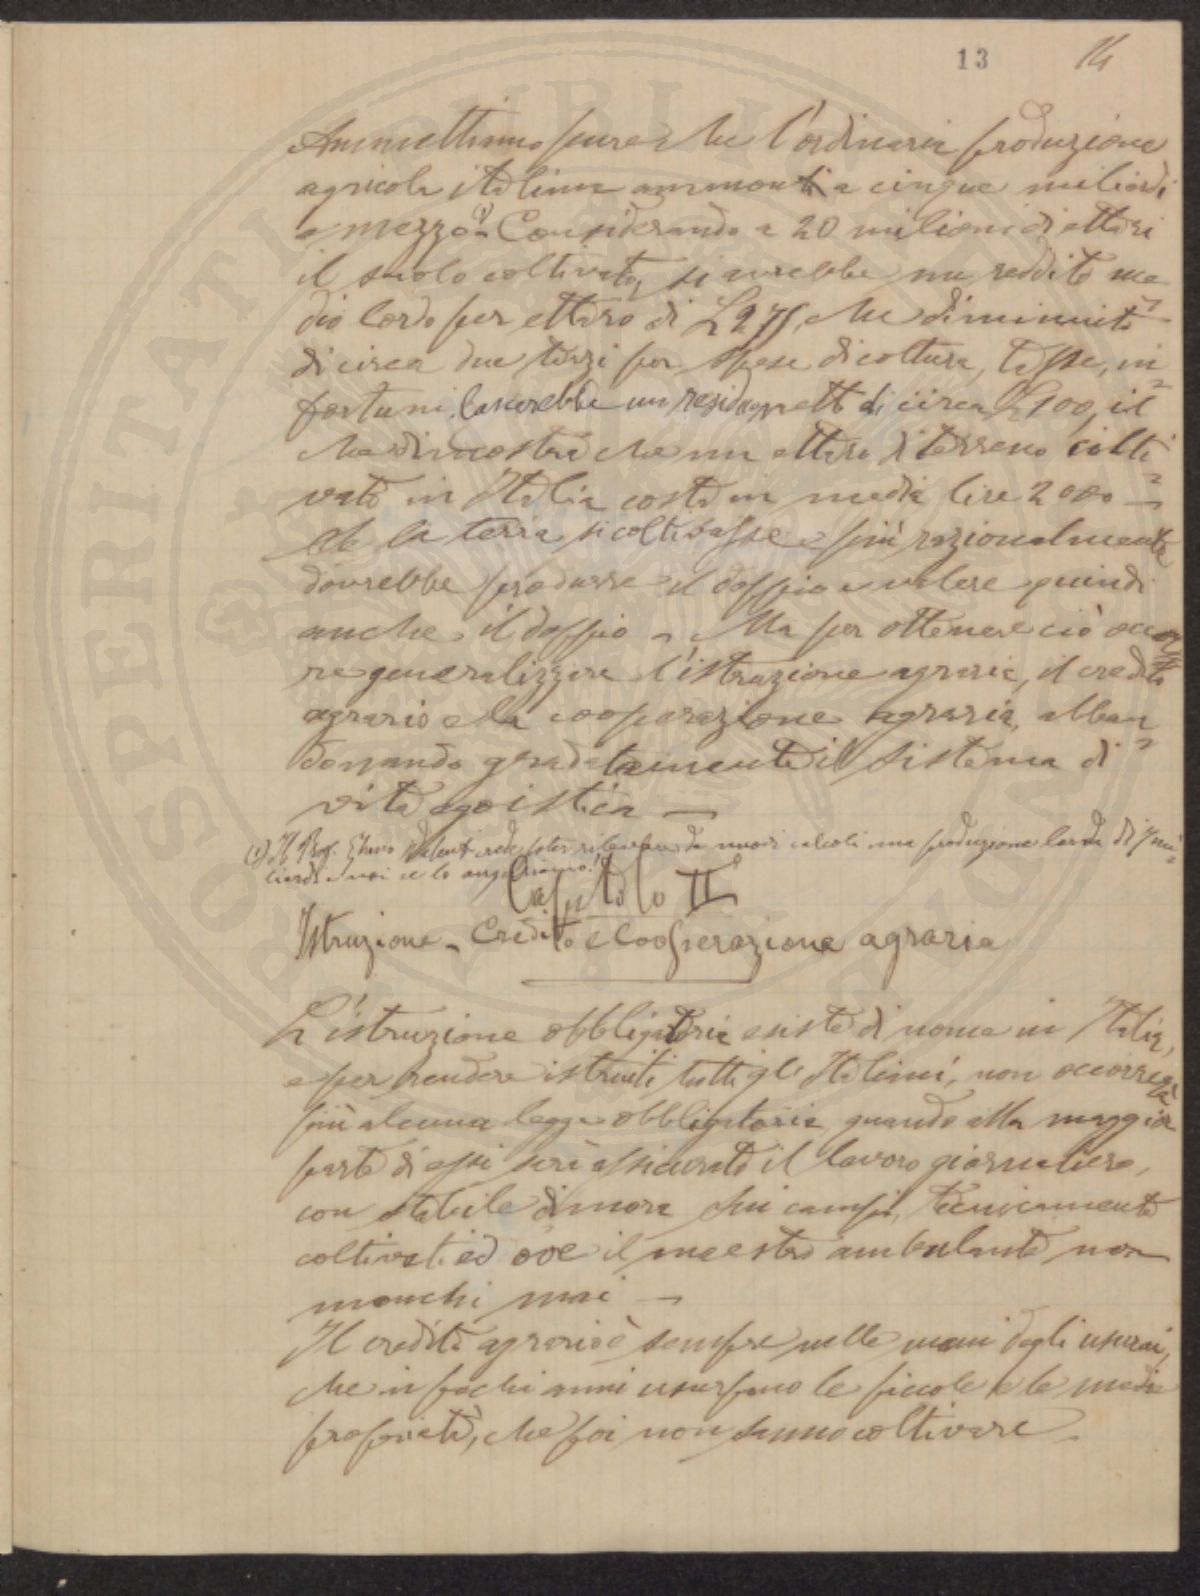 13 14
Ammettiamo pure che l'ordinaria produzione
agricola italiana ammonti a cinque miliardi
e mezzo (1) - Considerando a 20 milioni di ettari
il suolo coltivato, si avrebbe un reddito me=
dio lordo per ettaro di L 275, che diminuito
di circa due terzi per spese di coltura, tasse, in=
fortuni, lascerebbe un residuo netto di circa L 100, il
che dimostra che un ettaro di terreno colti=
vato in Italia costa in media lire 2000 -
Se la terra si coltivasse più razionalmente
dovrebbe produrre il doppio e valere quindi
anche il doppio - Ma per ottenere ciò occor
re generalizzare l'istruzione agraria, il credito
agrario e la cooperazione agraria, abban=
donando gradatamente il sistema di
vita egoistica -
(1) Il Prof. Valenti crede poter rilevare da nuovi calcoli una produzione lorda di 7 mi=
liardi e noi ce lo auguriamo!
Capitolo II
Istruzione - Credito e Cooperazione agraria
L'istruzione obbligatoria esiste di nome in Italia,
e per rendere istruiti tutti gli Italiani, non occorrerà
più alcuna legge obbligatoria, quando alla maggior
parte di essi sarà assicurato il lavoro giornaliero,
con stabile dimora sui campi, tecnicamente
coltivati ed ove il maestro ambulante non
manchi mai -
Il credito agrario è sempre nelle mani degli usurai,
che in pochi anni usurpano le piccole e le medie
proprietà, che poi non sanno coltivare -
SPERITATI PUBLICAE